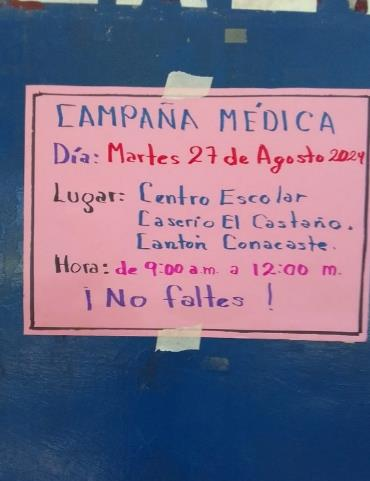 CAMPAÑA MÉDICA
Día: Martes 27 de Agosto 2024
Lugar: Centro Escolar
Caserío El Castaño.
Cantón Conacaste.
Hora: de 9:00 a.m. a 12:00 m.
¡No faltes!